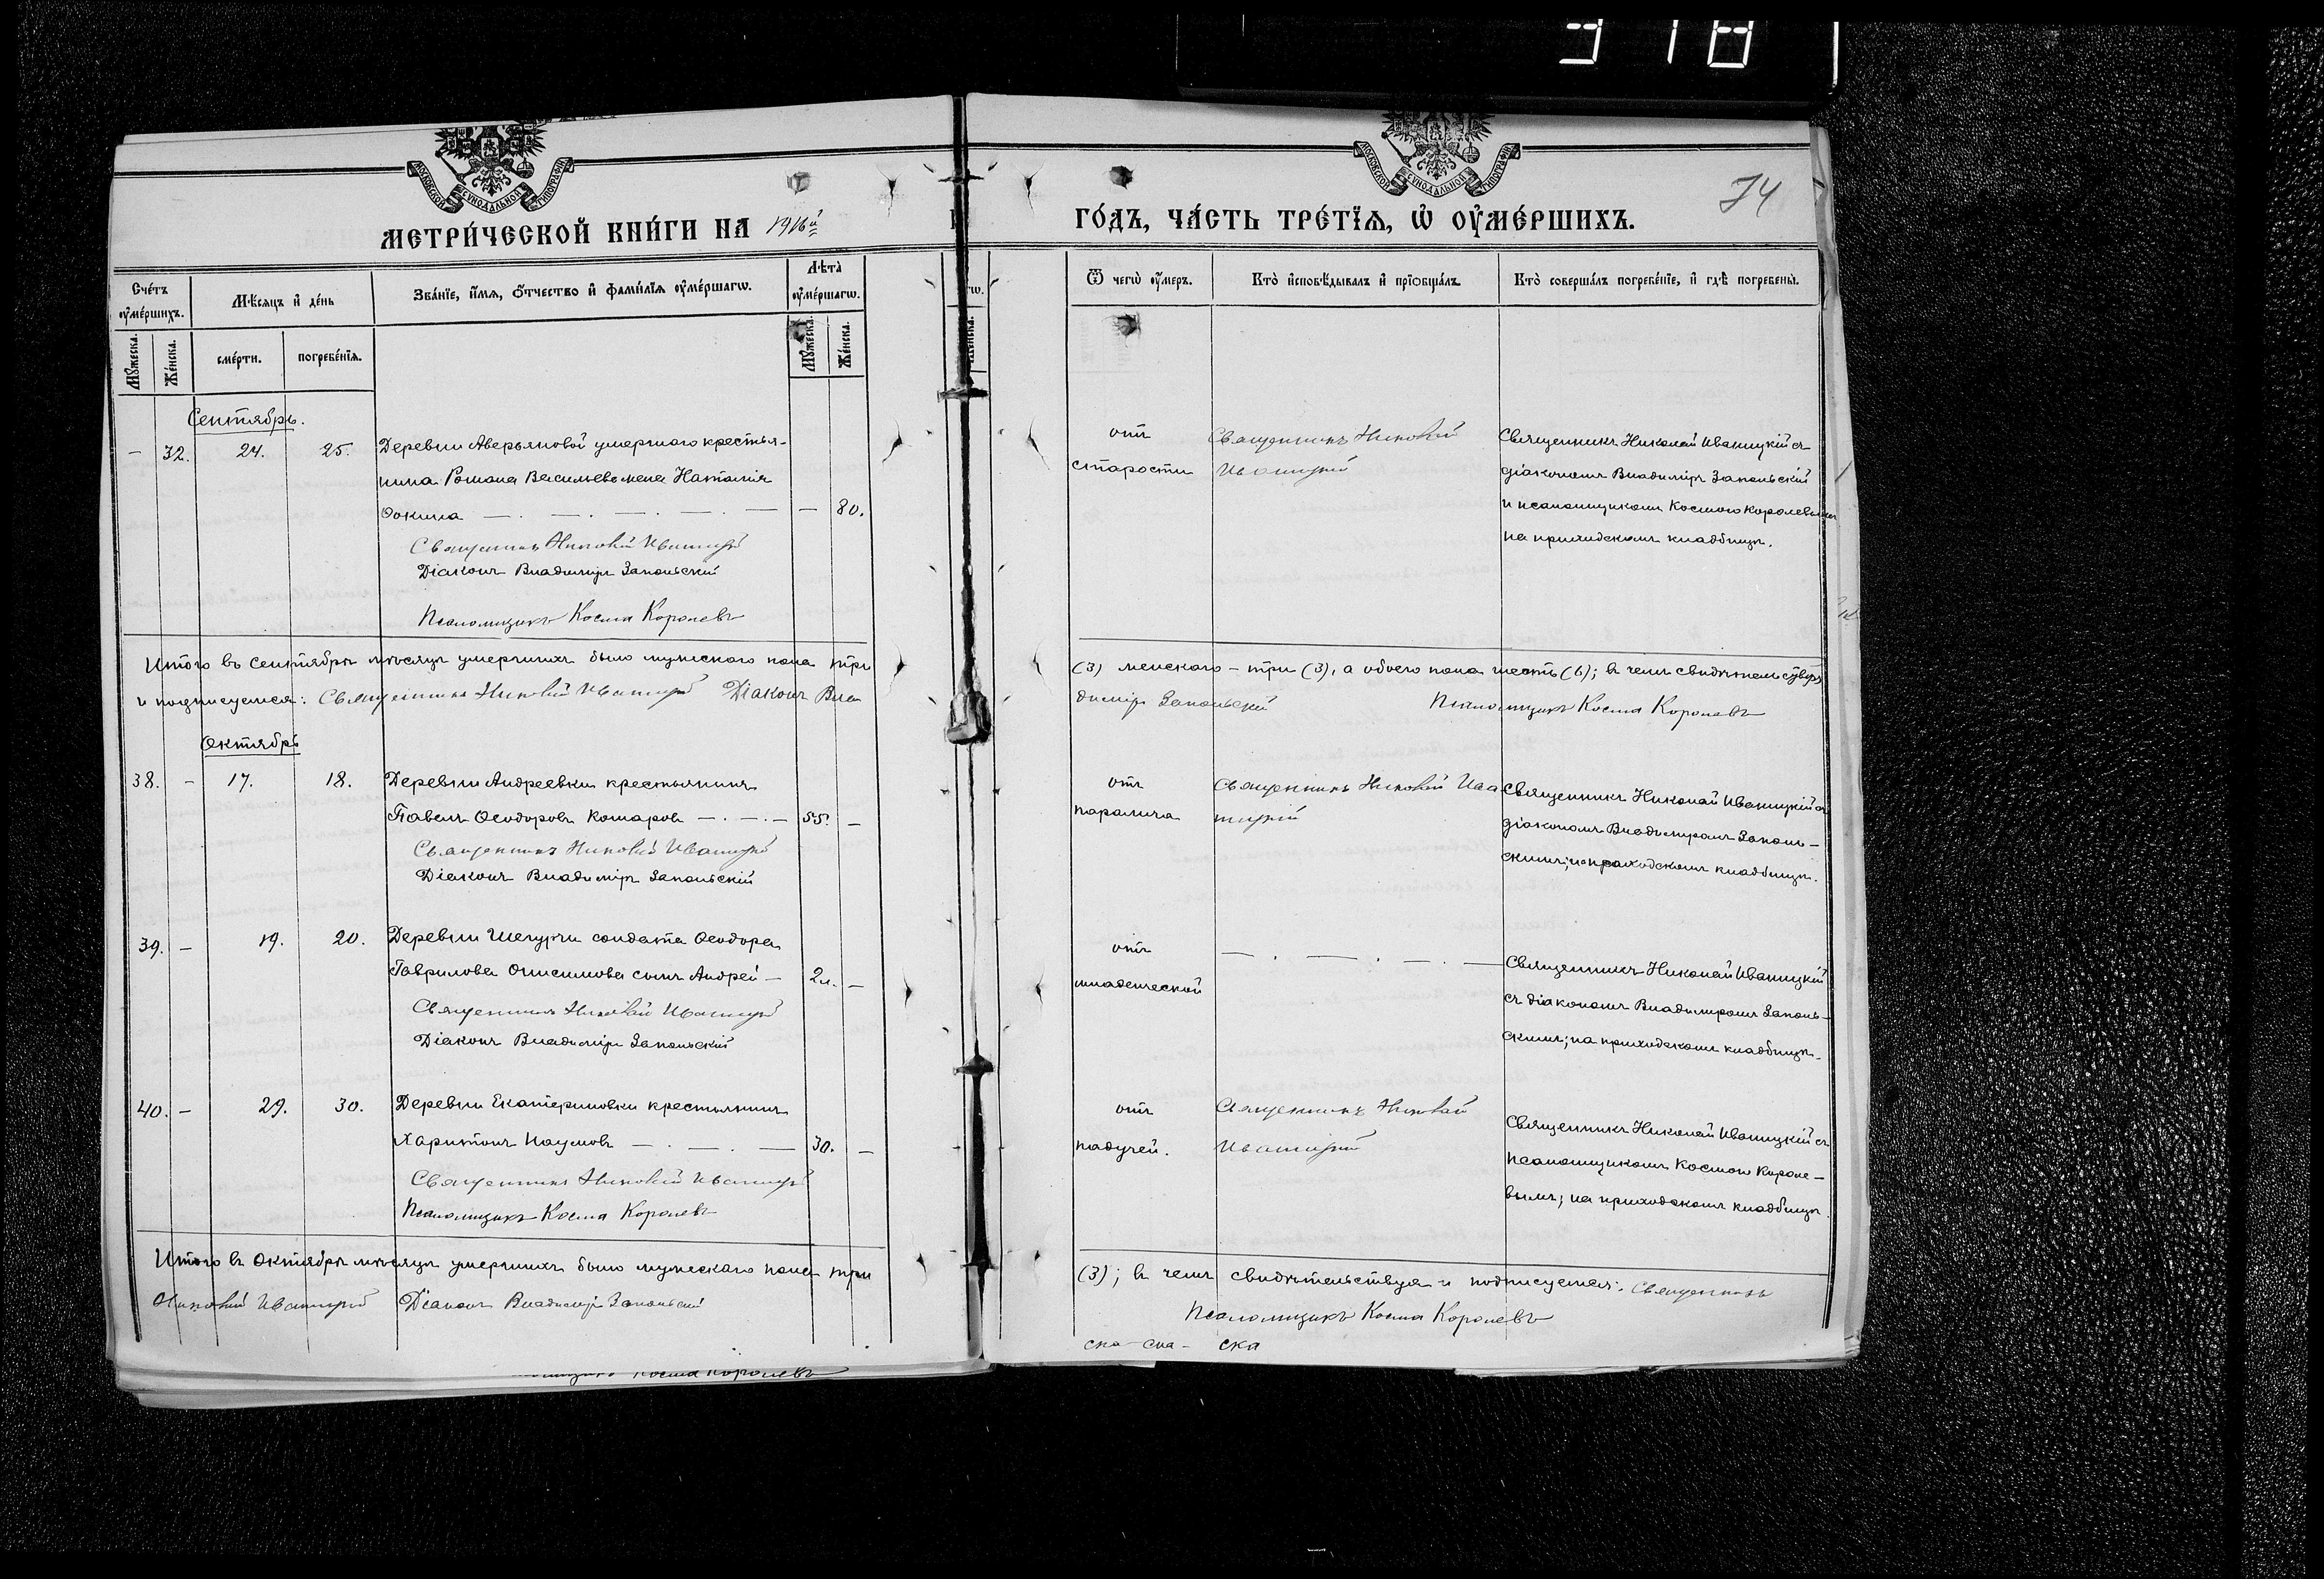 318
МОСКОВСКОЙ СѴНОДАЛЬНОЙ ТИПОГРАФІИ
МОСКОВСКОЙ СѴНОДАЛЬНОЙ ТИПОГРАФІИ
74
МЕТРИ́ЧЕСКОЙ КНИ́ГИ НА 1916й
ГО́ДЪ, ЧА́СТЬ ТРЕ́ТЇѦ, Ѡ҆ ОУ҆МЕ́РШИХЪ.
Сче́тъ оу҆ме́ршихъ.
Мꙋ́жеска.
Же́нска.
Мѣ́сяцъ и҆ де́нь
сме́рти.
погребе́нїѧ.
Зва́нїе, и҆́мѧ, ѻ҆́тчество и҆ фами́лїѧ оу҆ме́ршагѡ.
Лѣ́та оу҆ме́ршагѡ.
Мꙋ́жеска.
Же́нска.
Ѿ чегѡ̀ оу҆́меръ.
Кто̀ и҆сповѣ́дывалъ и҆ прїѻбща́лъ.
Кто̀ соверша́лъ погребе́нїе, и҆ гдѣ̀ погребены̀.
Сентябрь.
– 32. 24. 25. Деревни Аверьяновой умершаго крестья-
нина Романа Васильева жена Наталія
Ѳокина — 80.
Священникъ Николай Иваницкій
Діаконъ Владиміръ Запольскій
Псаломщикъ Косма Королевъ
отъ
старости
Священникъ Николай
Иваницкій
Священникъ Николай Иваницкій съ
діакономъ Владиміръ Запольскій
и псаломщикомъ Космою Королевымъ
на приходскомъ кладбищѣ.
Итого въ сентябрѣ мѣсяцѣ умершихъ было мужескаго пола три (3) женскаго – три (3), а обоего пола шесть (6); въ чемъ свидѣтельствуя
и подписуемся: Священникъ Николай Иваницкій Діаконъ Владиміръ Запольскій Псаломщикъ Косма Королевъ
Октябрь
38. – 17. 18. Деревни Андреевки крестьянинъ
Павелъ Ѳеодоровъ Комаровъ — 55. –
Священникъ Николай Иваницкій
Діаконъ Владиміръ Запольскій
отъ
паралича
Священникъ Николай Ива
ницкій
Священникъ Николай Иваницкій съ
діакономъ Владимиромъ Заполь-
скимъ; на приходскомъ кладбищѣ.
39. – 19. 20. Деревни солдата Ѳеодора
Гаврилова Онисимова сынъ Андрей – 2л. –
Священникъ Николай Иваницкій
Діаконъ Владиміръ Запольскій
отъ
младенческой
Священникъ Николай Иваницкій
съ діакономъ Владимиромъ Заполь-
скимъ; на приходскомъ кладбищѣ.
40. – 29. 30. Деревни Екатериновки крестьянинъ
Харитонъ Наумовъ — 30. –
Священникъ Николай Иваницкій
Псаломщикъ Косма Королевъ
отъ
падучей.
Священникъ Николай
Иваницкій
Священникъ Николай Иваницкій съ
псаломщикомъ Космою Короле-
вымъ; на приходскомъ кладбищѣ.
Итого въ Октябрѣ мѣсяцѣ умершихъ было мужескаго пола три (3); въ чемъ свидѣтельствуя и подписуемся: Священникъ
Николай Иваницкій Діаконъ Владиміръ Запольскій Псаломщикъ Косма Королевъ
ска
Косма Королевъ